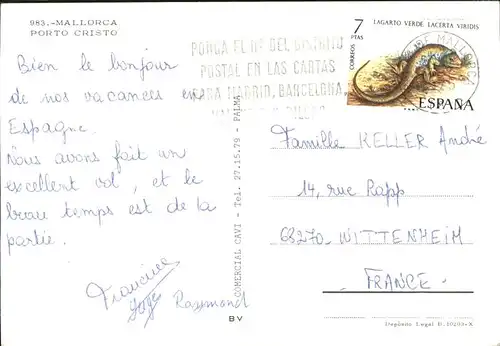 983.-MALLORCA
PORTO CRISTO
Bien le bonjour
de nos vacances en
Espagne.
Nous avons fait un
excellent vol, et le
beau temps est de la
partie.
Francine
Raymond
COMERCIAL CAVI - Tel. 27.15.79 - PALMA
BV
PONGA EL Nº DEL DISTRITO
POSTAL EN LAS CARTAS
PARA MADRID, BARCELONA,
DE MALLORCA
7
PTAS
LAGARTO VERDE LACERTA VIRIDIS
CORREOS
ESPAÑA
Famille KELLER André
14, rue Rapp
68270 - WITTENHEIM
- FRANCE -
Depósito Legal B. 10203-X